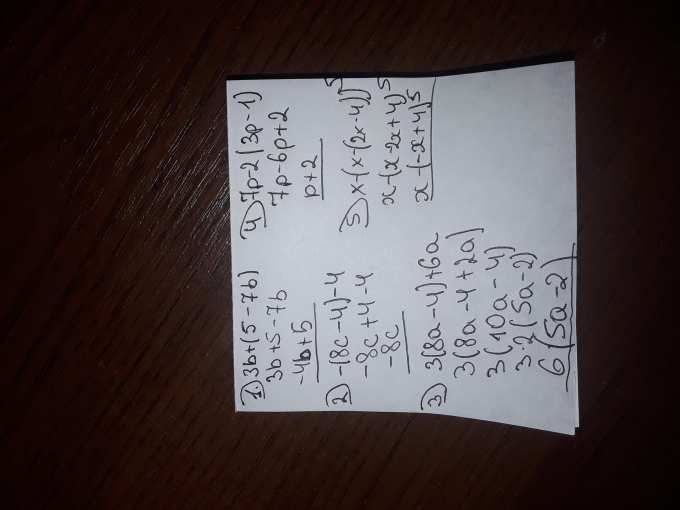 1. 3b+(5-7b)
3b+5-7b
-4b+5
2) -(8c-4)-4
-8c+4-4
-8c
3) 3(8a-4)+6a
3(8a-4+2a)
3(10a-4)
3·2(5a-2)
6(5a-2)
4) 7p-2(3p-1)
7p-6p+2
p+2
5) x-(x-(2x-4))5
x-(x-2x+4)5
x-(-x+4)5